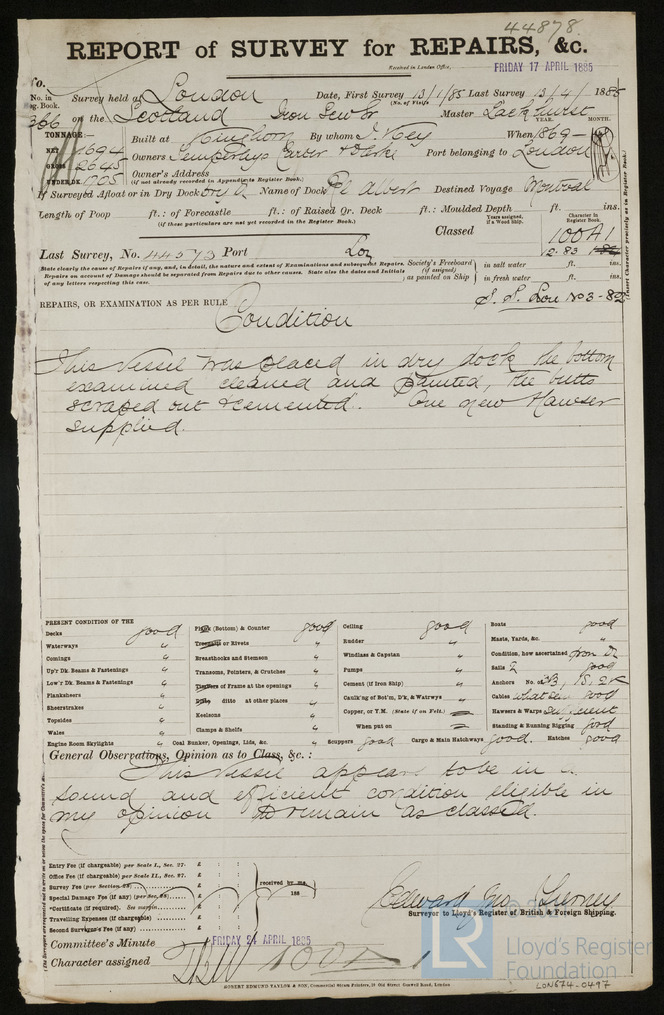 44878
REPORT of SURVEY for REPAIRS, &c.
Received in London Office, FRIDAY 17 APRIL 1885
No. in Reg. Book. Survey held at London Date, First Survey 13/1/85 Last Survey 13/4/ 1885
(No. of Visits)
366 on the Scotland Iron Screw Sr Master Lackhurst
TONNAGE:— YEAR. MONTH.
NET 1694 Built at Kinghorn By whom J. Key When 1869
GROSS 2645 Owners Temperleys Carter & Darke Port belonging to London
UNDER DK. 1905 Owner's Address
(if not already recorded in Appendix to Register Book.)
If Surveyed Afloat or in Dry Dock Dry D Name of Dock Rl Albert Destined Voyage Montreal
Length of Poop ft.: of Forecastle ft.: of Raised Qr. Deck ft.: Moulded Depth ft. ins.
(if these particulars are not yet recorded in the Register Book.)
Years assigned, if a Wood Ship. Character in Register Book.
Classed 100A1
Last Survey, No. 44573 Port Lon 12.83
State clearly the cause of Repairs if any, and, in detail, the nature and extent of Examinations and subsequent Repairs.
Repairs on account of Damage should be separated from Repairs due to other causes. State also the dates and Initials
of any letters respecting this case.
Society's Freeboard (if assigned) as painted on Ship in salt water ft. ins.
in fresh water ft. ins.
S. S. Lon No 3-82
REPAIRS, OR EXAMINATION AS PER RULE Condition
This Vessel was placed in dry dock the bottom
examined cleaned and painted, the butts
scraped out & cemented. One new Hawser
supplied.
PRESENT CONDITION OF THE
Decks good
Waterways "
Comings "
Up'r Dk. Beams & Fastenings "
Low'r Dk. Beams & Fastenings "
Planksheers "
Sheerstrakes "
Topsides "
Wales "
Engine Room Skylights "
Plank (Bottom) & Counter good
Treenails or Rivets "
Breasthooks and Stemson "
Transoms, Pointers, & Crutches "
Timbers of Frame at the openings "
Ditto ditto at other places "
Keelsons "
Clamps & Shelfs "
Coal Bunker, Openings, Lids, &c. "
Ceiling good
Rudder "
Windlass & Capstan "
Pumps "
Cement (if Iron Ship) "
Caulk'ng of Bot'm, D'k, & Watrways "
Copper, or Y.M. (State if on Felt.)
When put on
Scuppers good Cargo & Main Hatchways good. Hatches good
Boats good
Masts, Yards, &c. "
Condition, how ascertained from Dk
Sails 2 good
Anchors No. of 3B, 1S, 2K
Cables what seen good
Hawsers & Warps sufficient
Standing & Running Rigging good
General Observations, Opinion as to Class, &c.:
This Vessel appears to be in a
sound and efficient condition eligible in
my opinion to remain as classed.
Entry Fee (if chargeable) per Scale I., Sec. 27. £ : :
Office Fee (if chargeable) per Scale II., Sec. 27. £ : :
Survey Fee (per Section 28) £ : :
Special Damage Fee (if any) (per Sec. 28) £ : :
*Certificate (if required). See margin £ : :
Travelling Expenses (if chargeable) £ : :
Second Surveyor's Fee (if any) £ : :
received by me, 188
Edward Jno Tierney
Surveyor to Lloyd's Register of British & Foreign Shipping.
Committee's Minute FRIDAY 24 APRIL 1885
Character assigned 100A1
GOBERT EDMUND TAYLOR & SON, Commercial Steam Printers, 19 Old Street Goswell Road, London
LR
Lloyd's Register
Foundation
LON674-0497